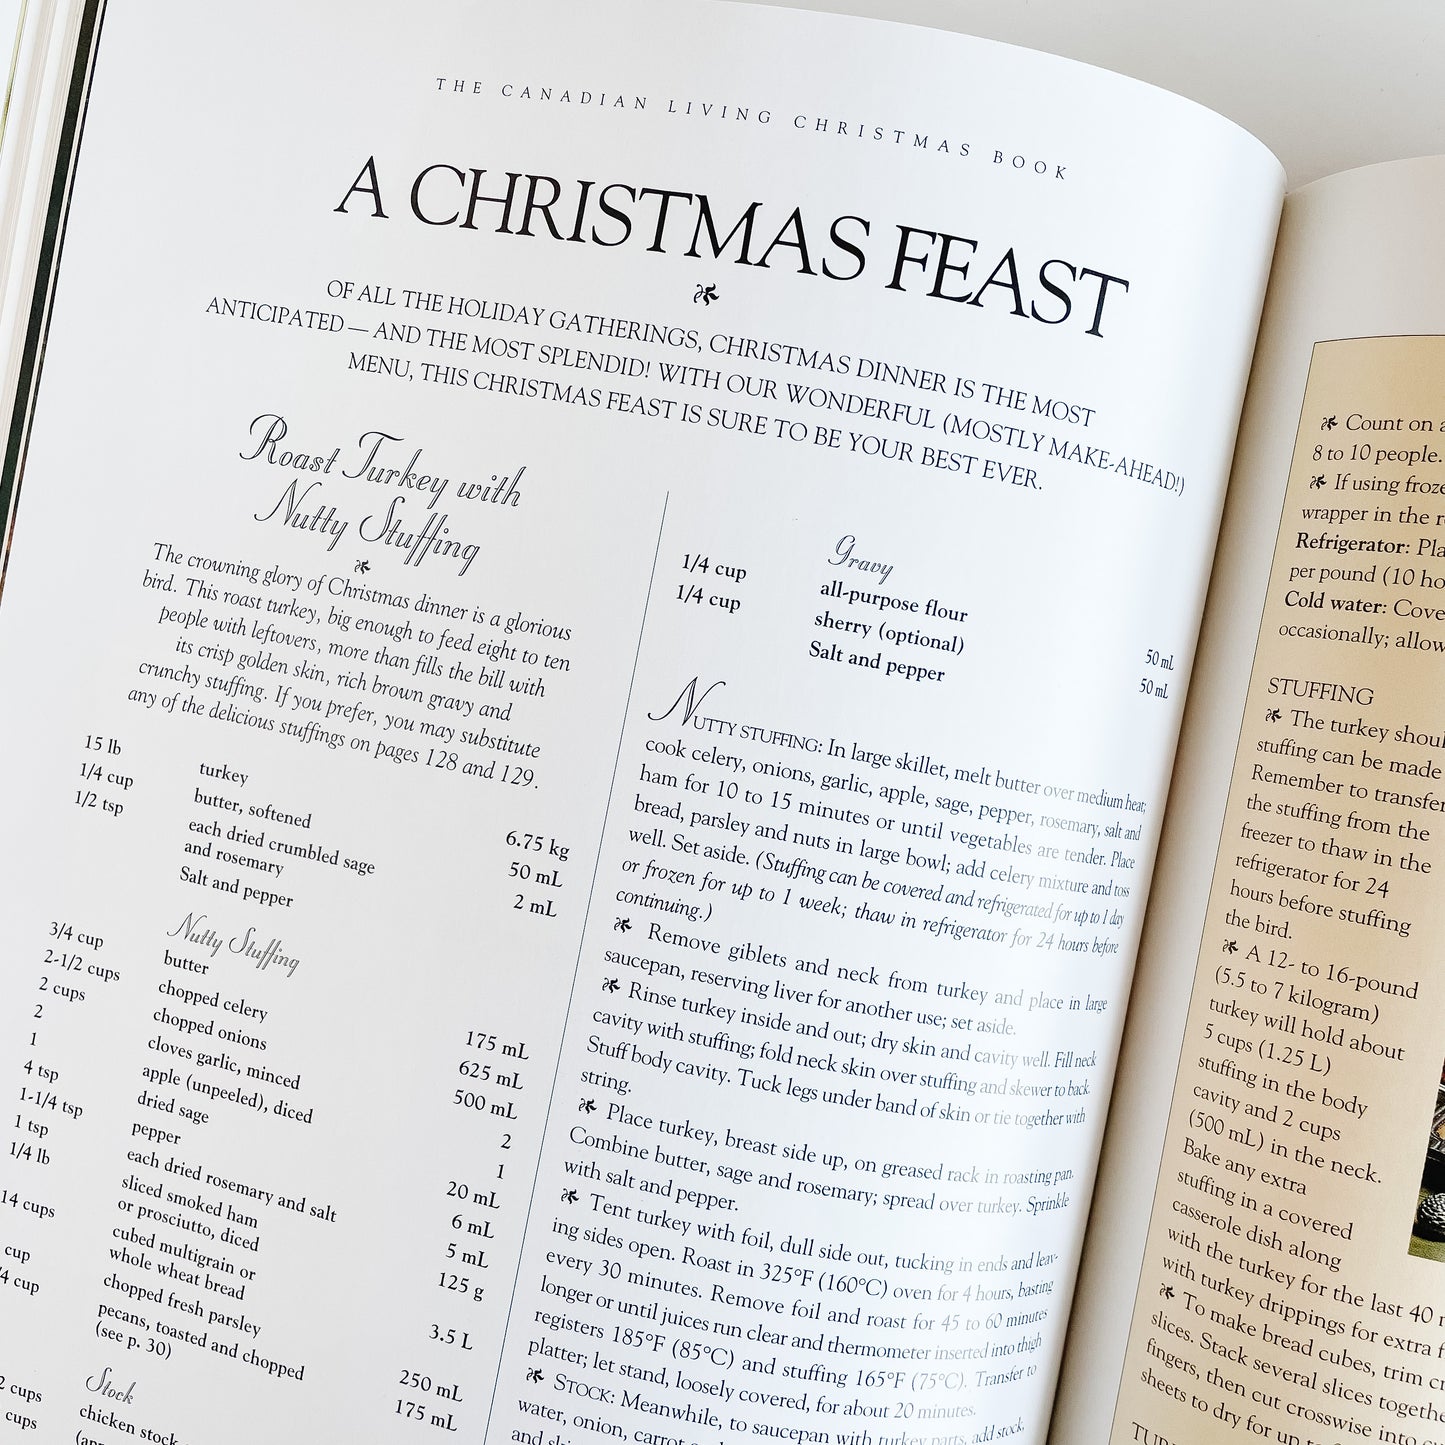 THE CANADIAN LIVING CHRISTMAS BOOK
A CHRISTMAS FEAST
OF ALL THE HOLIDAY GATHERINGS, CHRISTMAS DINNER IS THE MOST
ANTICIPATED — AND THE MOST SPLENDID! WITH OUR WONDERFUL (MOSTLY MAKE-AHEAD!)
MENU, THIS CHRISTMAS FEAST IS SURE TO BE YOUR BEST EVER.
Roast Turkey with
Nutty Stuffing
The crowning glory of Christmas dinner is a glorious
bird. This roast turkey, big enough to feed eight to ten
people with leftovers, more than fills the bill with
its crisp golden skin, rich brown gravy and
crunchy stuffing. If you prefer, you may substitute
any of the delicious stuffings on pages 128 and 129.
15 lb turkey 6.75 kg
1/4 cup butter, softened 50 mL
1/2 tsp each dried crumbled sage
and rosemary 2 mL
Salt and pepper
Nutty Stuffing
3/4 cup butter 175 mL
2-1/2 cups chopped celery 625 mL
2 cups chopped onions 500 mL
2 cloves garlic, minced 2
1 apple (unpeeled), diced 1
4 tsp dried sage 20 mL
1-1/4 tsp pepper 6 mL
1 tsp each dried rosemary and salt 5 mL
1/4 lb sliced smoked ham
or prosciutto, diced 125 g
14 cups cubed multigrain or
whole wheat bread 3.5 L
cup chopped fresh parsley 250 mL
/4 cup pecans, toasted and chopped 175 mL
(see p. 30)
Stock
2 cups chicken stock
cups
Gravy
1/4 cup all-purpose flour 50 mL
1/4 cup sherry (optional) 50 mL
Salt and pepper
NUTTY STUFFING: In large skillet, melt butter over medium heat;
cook celery, onions, garlic, apple, sage, pepper, rosemary, salt and
ham for 10 to 15 minutes or until vegetables are tender. Place
bread, parsley and nuts in large bowl; add celery mixture and toss
well. Set aside. (Stuffing can be covered and refrigerated for up to 1 day
or frozen for up to 1 week; thaw in refrigerator for 24 hours before
continuing.)
Remove giblets and neck from turkey and place in large
saucepan, reserving liver for another use; set aside.
Rinse turkey inside and out; dry skin and cavity well. Fill neck
cavity with stuffing; fold neck skin over stuffing and skewer to back.
Stuff body cavity. Tuck legs under band of skin or tie together with
string.
Place turkey, breast side up, on greased rack in roasting pan.
Combine butter, sage and rosemary; spread over turkey. Sprinkle
with salt and pepper.
Tent turkey with foil, dull side out, tucking in ends and leav-
ing sides open. Roast in 325°F (160°C) oven for 4 hours, basting
every 30 minutes. Remove foil and roast for 45 to 60 minutes
longer or until juices run clear and thermometer inserted into thigh
registers 185°F (85°C) and stuffing 165°F (75°C). Transfer to
platter; let stand, loosely covered, for about 20 minutes.
STOCK: Meanwhile, to saucepan with turkey parts, add stock,
water, onion, carrot
and
Count on a
8 to 10 people.
If using froze
wrapper in the r
Refrigerator: Pla
per pound (10 ho
Cold water: Cove
occasionally; allow
STUFFING
The turkey shoul
stuffing can be made
Remember to transfer
the stuffing from the
freezer to thaw in the
refrigerator for 24
hours before stuffing
the bird.
A 12- to 16-pound
(5.5 to 7 kilogram)
turkey will hold about
5 cups (1.25 L)
stuffing in the body
cavity and 2 cups
(500 mL) in the neck.
Bake any extra
stuffing in a covered
casserole dish along
with the turkey for the last 40 m
with turkey drippings for extra f
To make bread cubes, trim cr
slices. Stack several slices togethe
fingers, then cut crosswise into cu
sheets to dry for up to